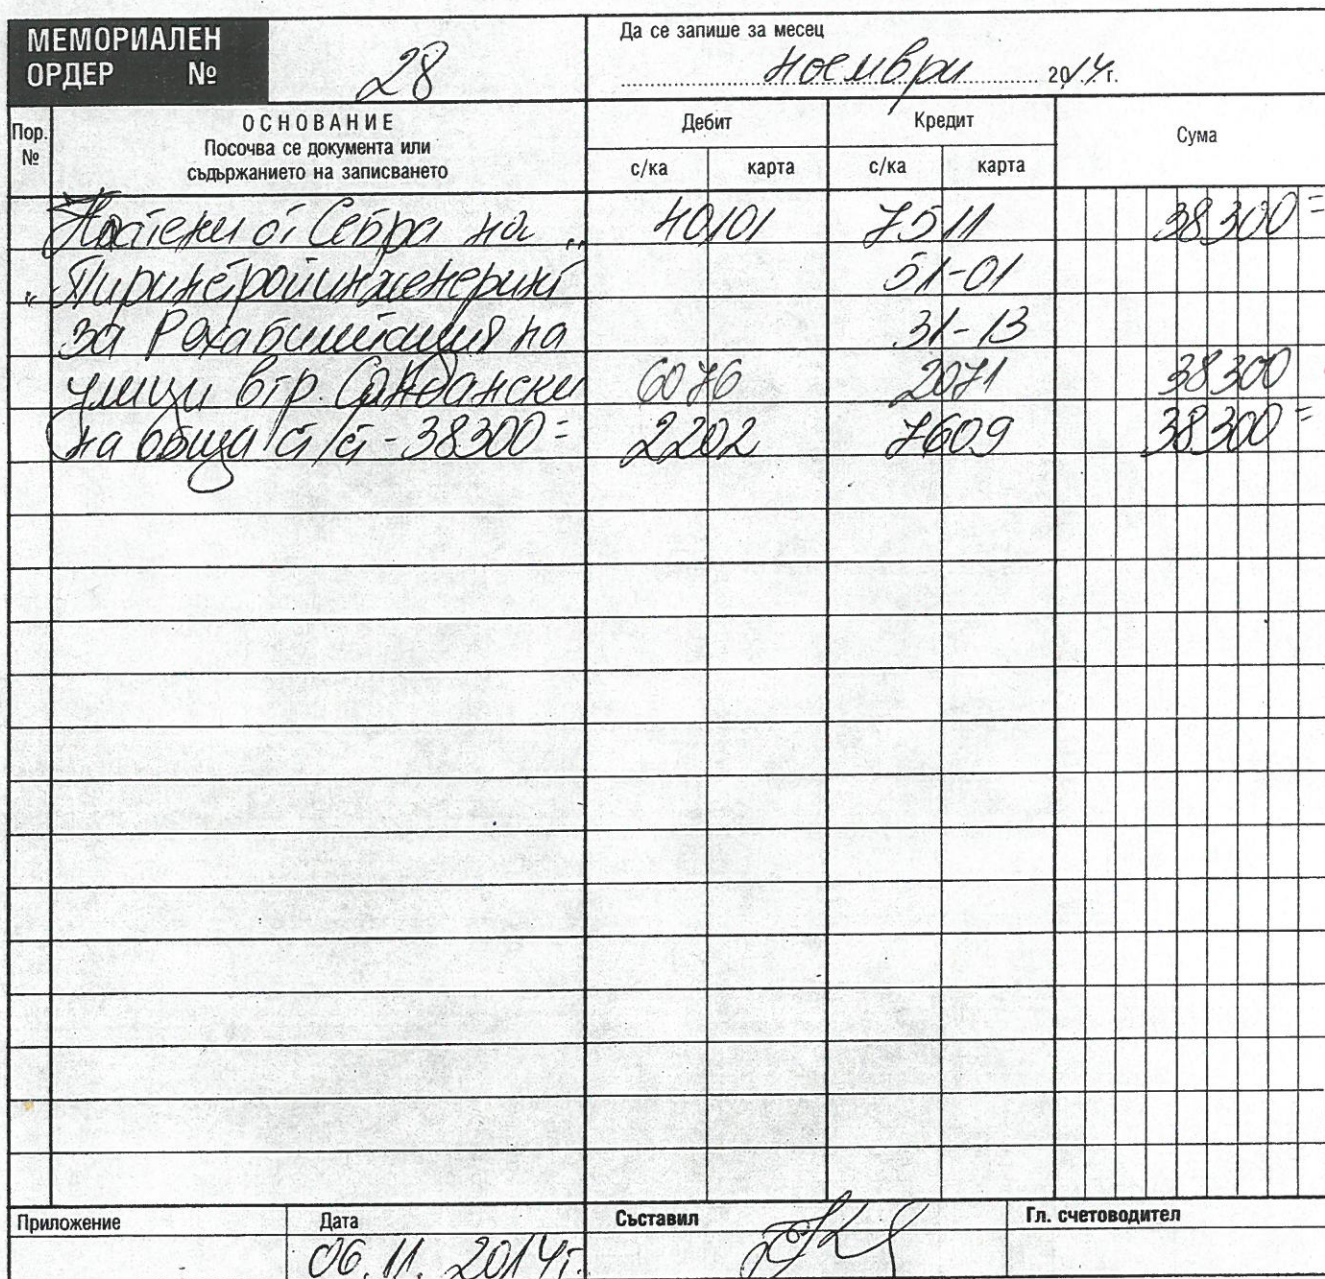 МЕМОРИАЛЕН
ОРДЕР №
28
Да се запише за месец
ноември 2014г.
Пор. №
ОСНОВАНИЕ
Посочва се документа или
съдържанието на записването
Дебит
с/ка карта
Кредит
с/ка карта
Сума
Платени от Себра на „ 40101 7511 38300=
„Пиринстройинженеринг 51-01
за Рехабилитация на 31-13
улици в гр. Сандански 6076 2071 38300
на обща ст/ст - 38300= 2202 7609 38300=
Приложение
Дата
06.11.2014г.
Съставил
Гл. счетоводител